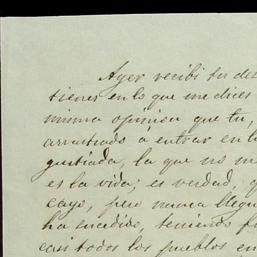 Ayer recibi tu
tienes en lo que me dices
misma opinion que tu,
arrastrado á entrar en
gustiada, la que no
es la vida; es verdad,
cayo, pero nunca
ha sucedido, teniendo
casi todos los pueblos en